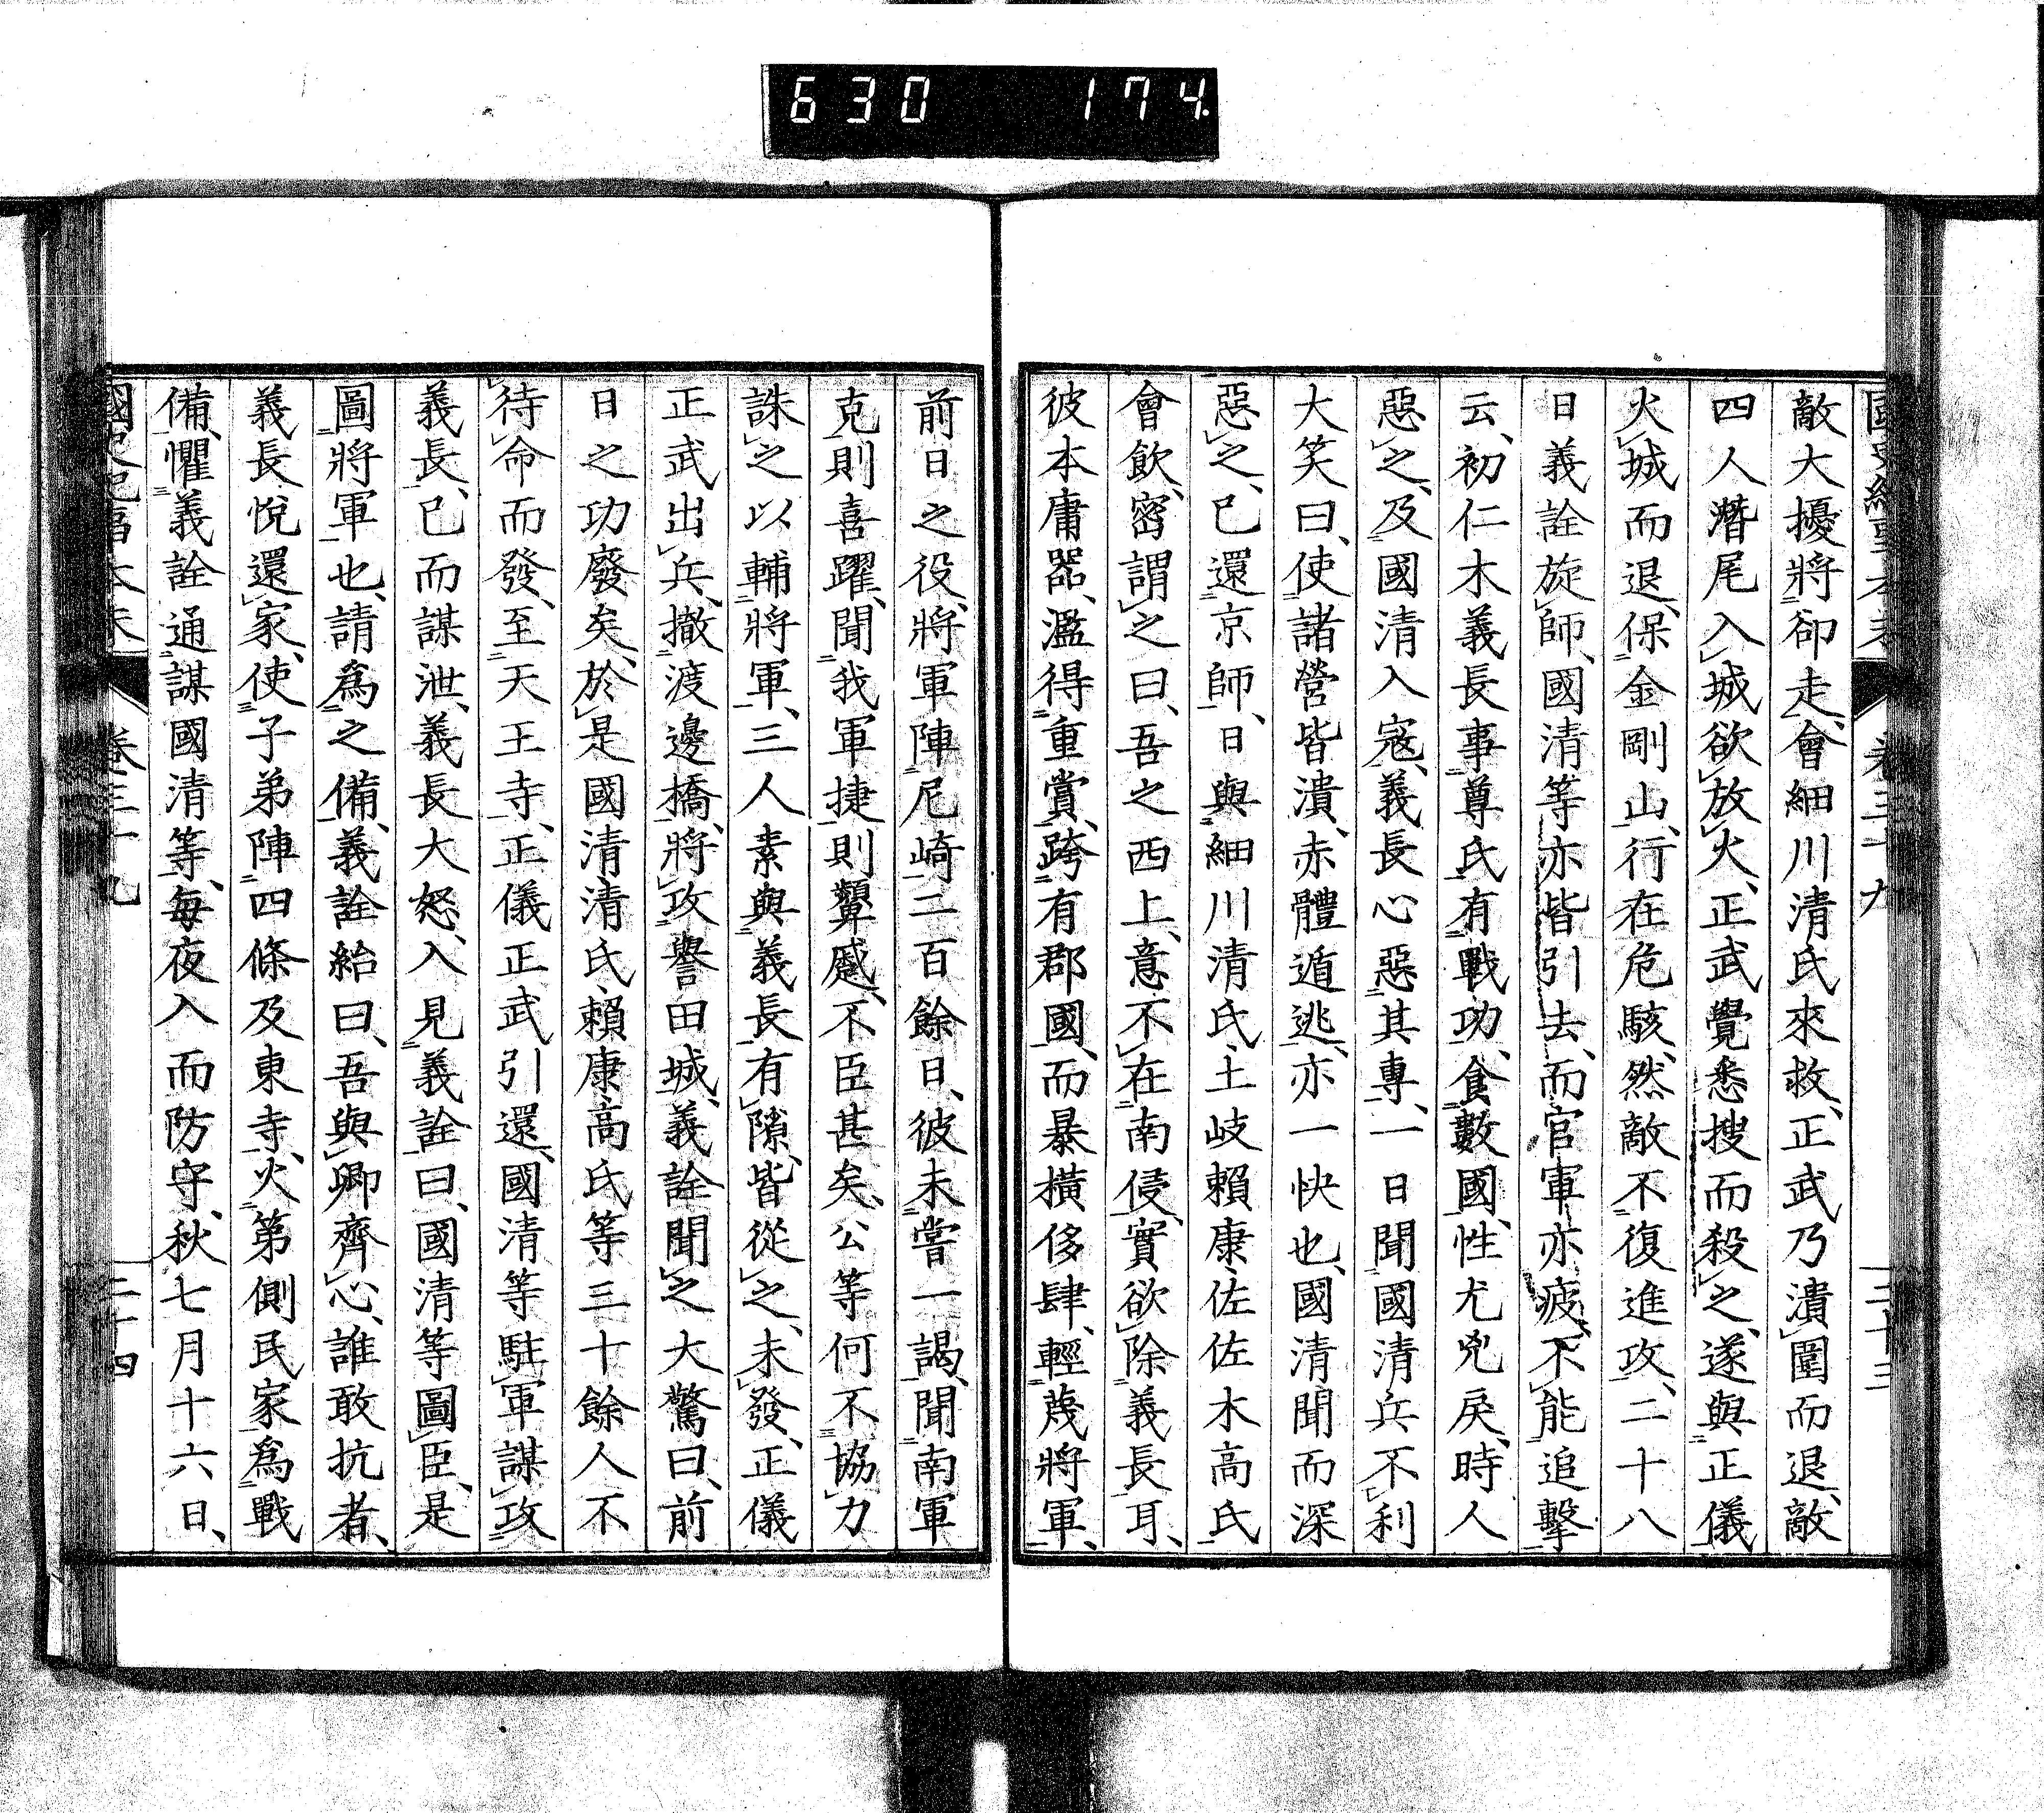 630 174.
國史紀事本末 卷三十九 二十三
敵大擾、將卻走、會細川清氏來救、正武乃潰圍而退、敵
四人潛尾入城欲放火、正武覺悉搜而殺之、遂與正儀
火城而退、保金剛山、行在危駭、然敵不復進攻、二十八
日義詮旋師、國清等亦皆引去、而官軍亦疲、不能追擊
云、初仁木義長事尊氏有戰功、食數國、性尤兇戾、時人
惡之、及國清入寇、義長心惡其專、一日聞國清兵不利
大笑曰、使諸營皆潰、赤體遁逃、亦一快也、國清聞而深
惡之、已還京師、日與細川清氏土岐賴康佐佐木高氏
會飲、密謂之曰、吾之西上、意不在南侵、實欲除義長耳、
彼本庸器、濫得重賞、跨有郡國、而暴橫侈肆、輕蔑將軍、
前日之役、將軍陣尼崎二百餘日、彼未嘗一謁、聞南軍
克則喜躍、聞我軍捷則顰蹙、不臣甚矣、公等何不協力
誅之以輔將軍、三人素與義長有隙、皆從之、未發、正儀
正武出兵、撤渡邊橋、將攻譽田城、義詮聞之大驚曰、前
日之功廢矣、於是國清清氏賴康高氏等三十餘人不
待命而發、至天王寺、正儀正武引還、國清等駐軍謀攻
義長、已而謀泄、義長大怒、入見義詮曰、國清等圖臣、是
圖將軍也、請爲之備、義詮紿曰、吾與卿齊心、誰敢抗者、
義長悅還家、使子弟陣四條及東寺、火第側民家爲戰
備、懼義詮通謀國清等、每夜入而防守、秋七月十六日、
國史紀事本末 卷三十九 二十四